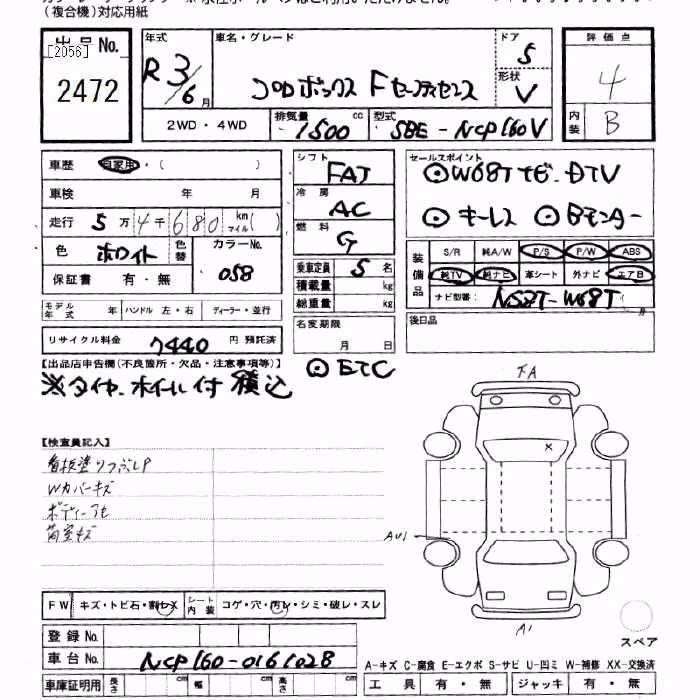 (複合機)対応用紙
出品No.
[2056]
2472
年式
R 3/6月
車名・グレード
プロボックス Fセーフティセンス
ドア
5
形状
V
評価点
4
内装
B
2WD・4WD
排気量
1500 cc
型式
5BE-NCP160V
車歴 自家用・( )
車検 年 月
走行 5万4千680 km マイル( )
色 ホワイト 色替
カラーNo.
058
保証書 有・無
モデル年式 年 ハンドル 左・右 ディーラー・並行
リサイクル料金 7440 円 預託済
シフト
FAT
冷房
AC
燃料
G
乗車定員 5 名
積載量 kg
総重量 kg
名変期限
月 日
セールスポイント
⊙W68Tナビ.DTV
⊙キーレス ⊙Bモニター
装備品
S/R 純A/W P/S P/W ABS
純TV 純ナビ 革シート 外ナビ エアB
ナビ型番: NSZT-W68T
後日品
【出品店申告欄(不良箇所・欠品・注意事項等)】
⊙ETC
※タイヤ.ホイール付 積込
【検査員記入】
看板塗りつぶしP
Wカバーキズ
ボディーアセ
荷室キズ
FW キズ・トビ石・割レX
シート内装 コゲ・穴・汚レ・シミ・破レ・スレ
登録No.
車台No. NCP160-0161028
車庫証明用 長さ cm 幅 cm 高さ cm
下A
X
AU1
A1
スペア
A-キズ C-腐食 E-エクボ S-サビ U-凹ミ W-補修 XX-交換済
工具 有・無 ジャッキ 有・無